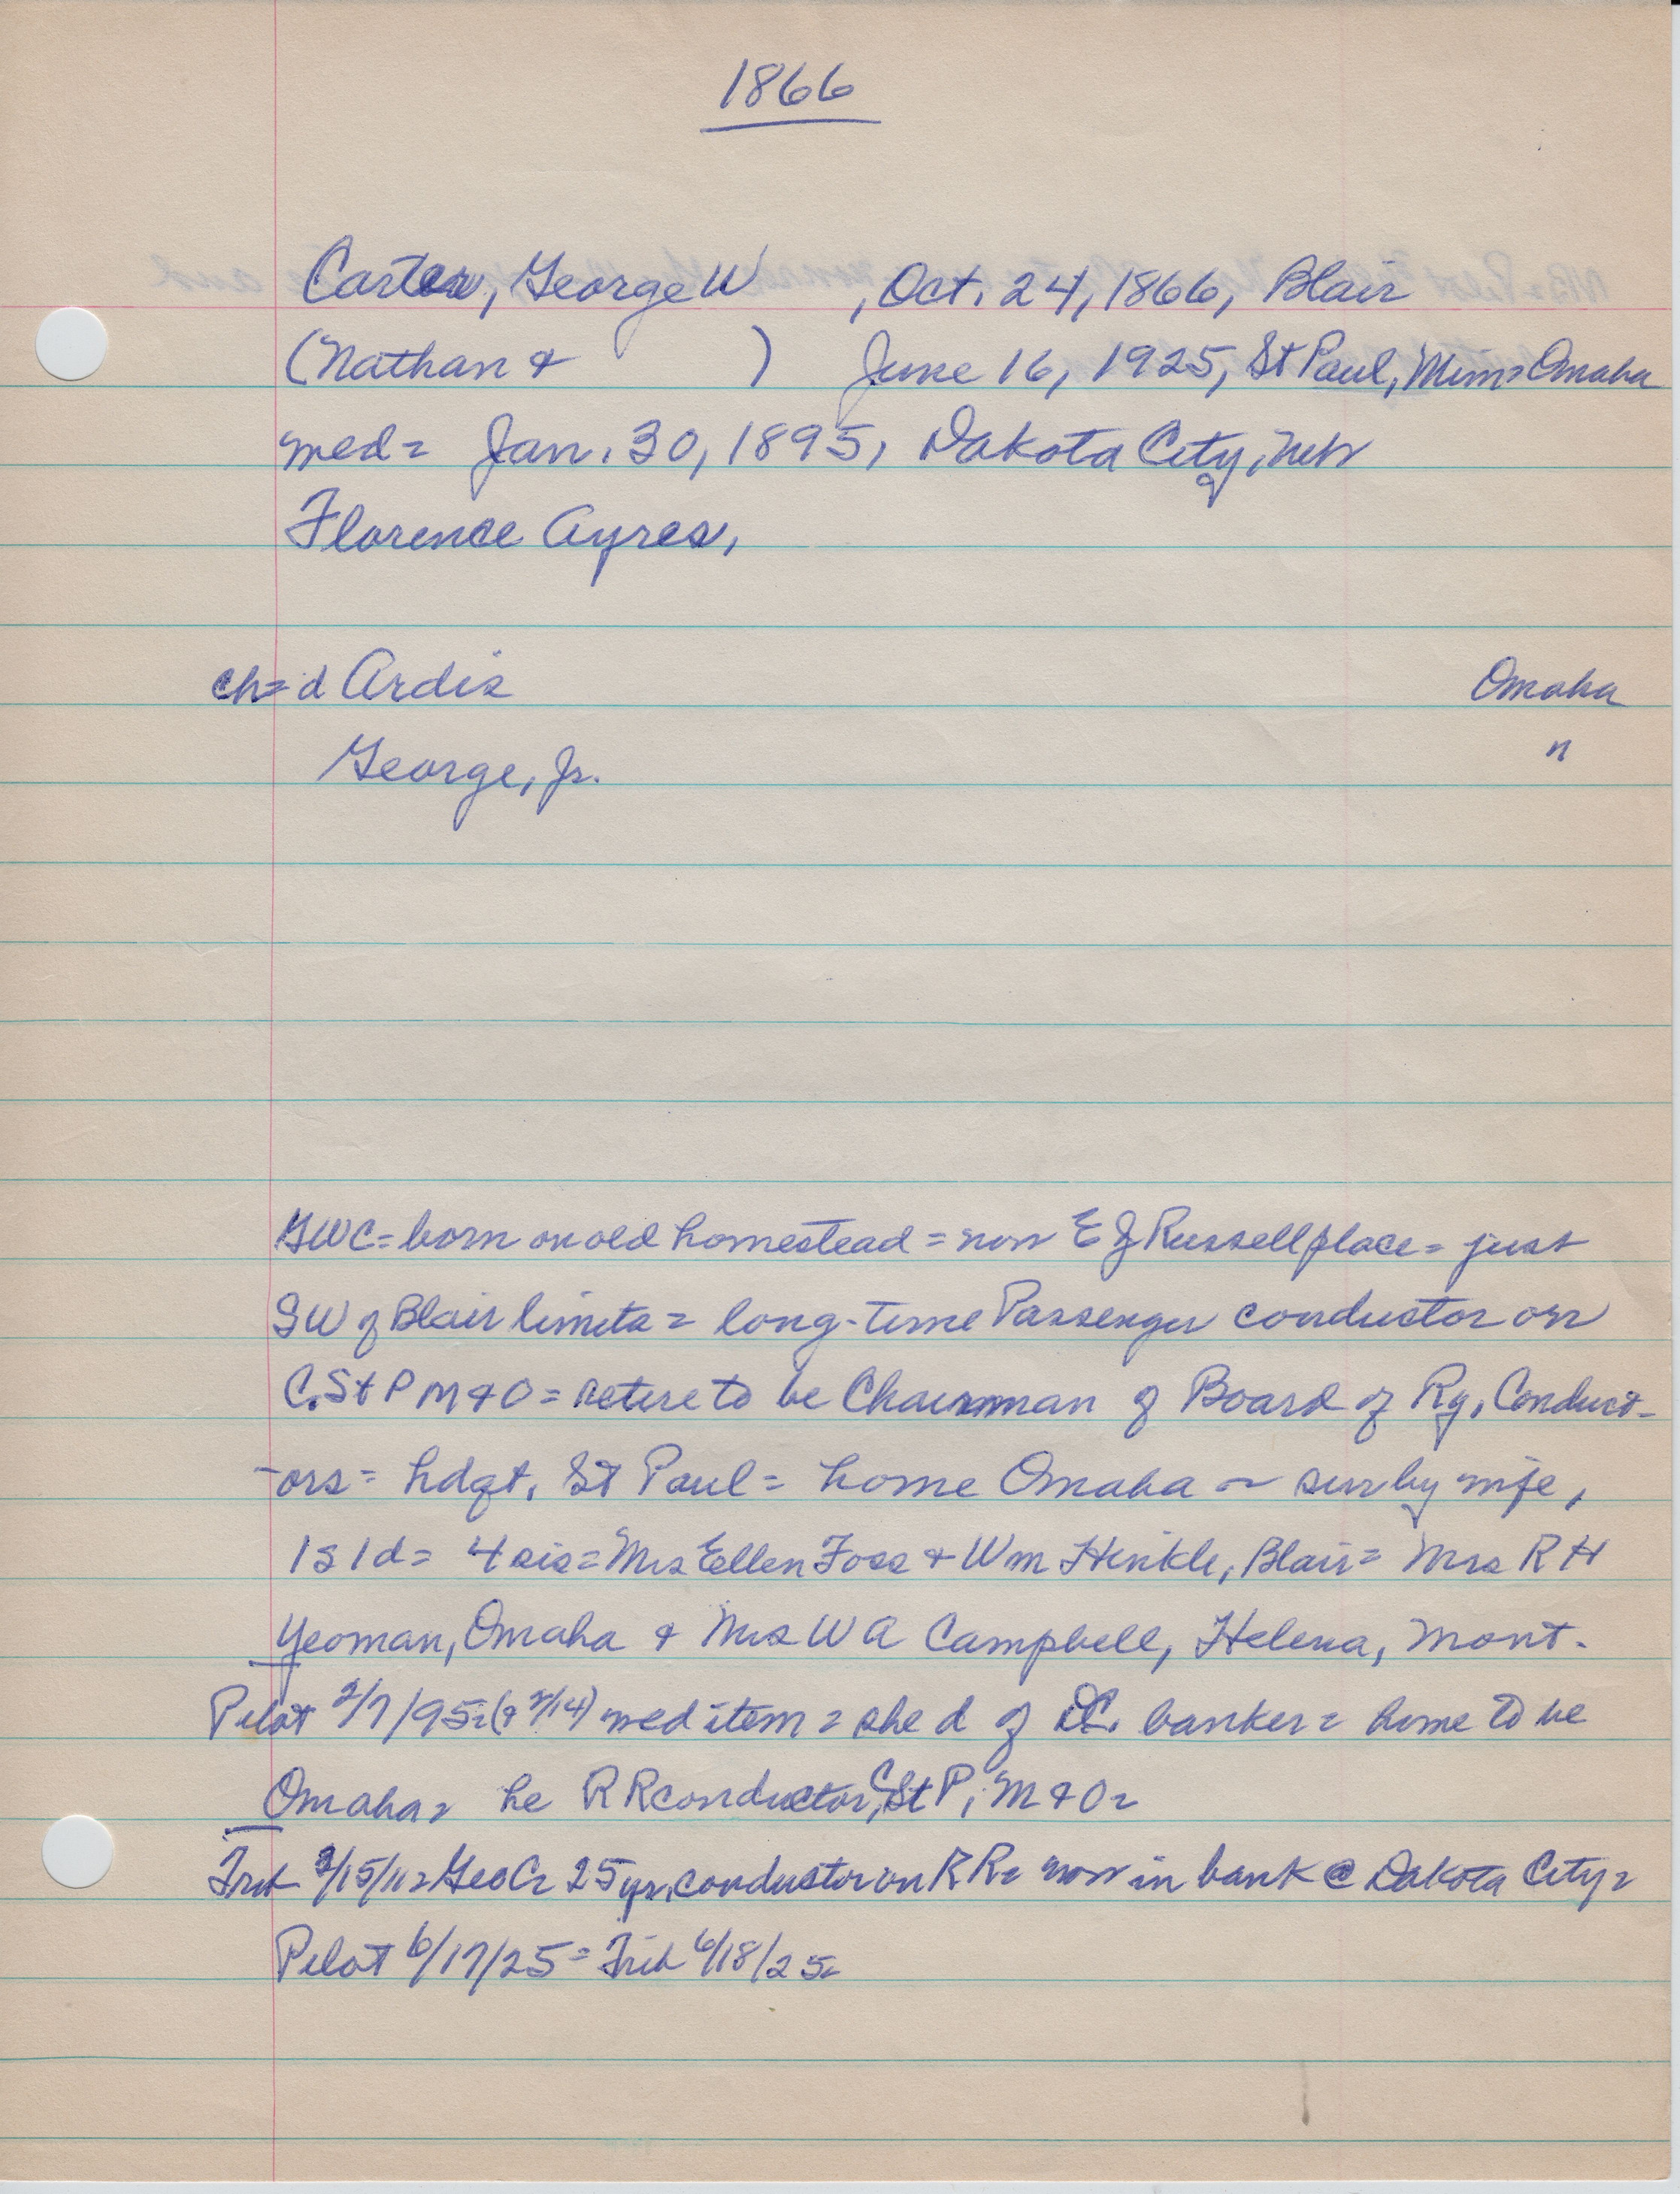 1866
Carter, George W , Oct. 24, 1866, Blair
(Nathan & ) June 16, 1925, St Paul, Minn = Omaha
med = Jan. 30, 1895, Dakota City, Neb
Florence Ayres,
ch = d Ardis Omaha
George, Jr. "
GWC = born on old homestead = now E J Russell place = just
SW of Blair limits = long-time Passenger conductor on
C. St P M & O = retire to be Chairman of Board of Ry. Conduct-
-ors = hdqt. St Paul = home Omaha ~ sur by wife,
1 s 1 d = 4 sis = Mrs Ellen Foss & Wm Hinkle, Blair = Mrs R H
Yeoman, Omaha & Mrs W A Campbell, Helena, Mont.
Pilot 2/7/95 = (& 2/14) med item = she d of DC. banker = home to be
Omaha = he R R conductor, C St P, M & O =
Trib 2/15/11 = Geo C = 25 yr. conductor on R R = now in bank @ Dakota City =
Pilot 6/17/25 = Trib 6/18/25 =